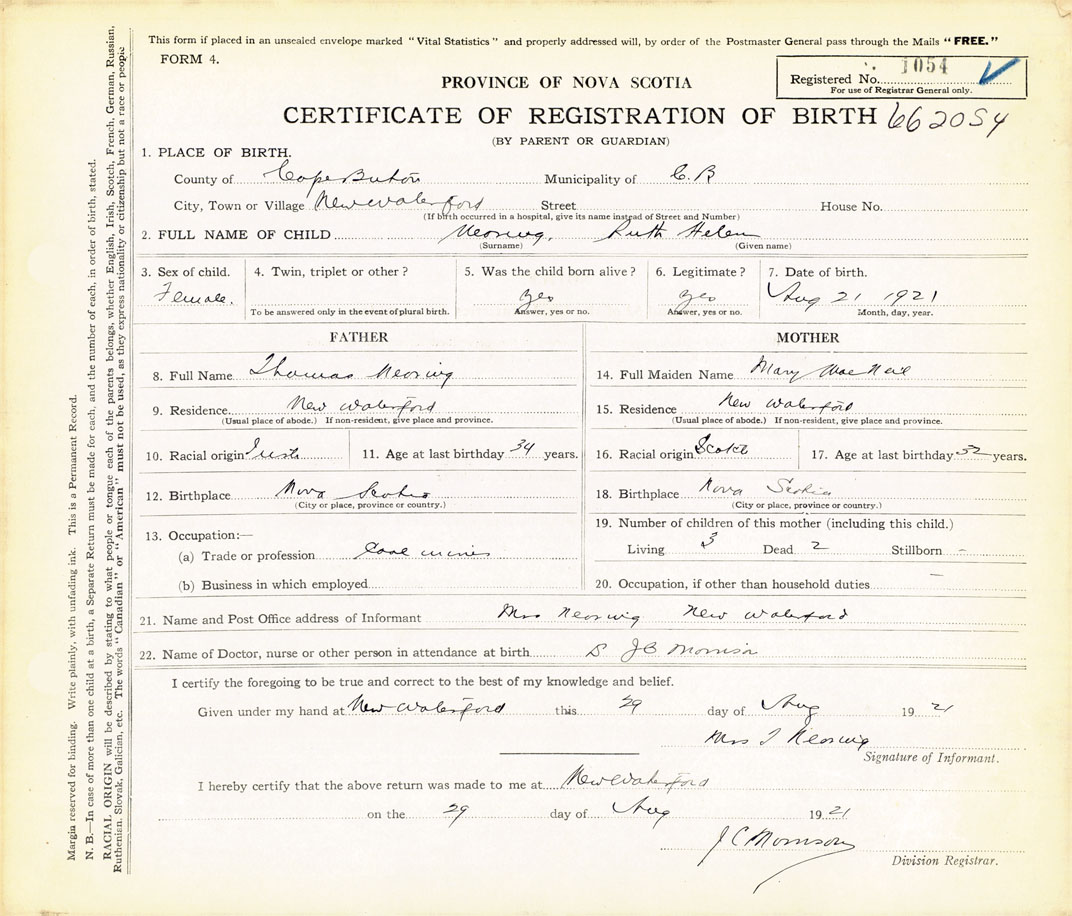 This form if placed in an unsealed envelope marked "Vital Statistics" and properly addressed will, by order of the Postmaster General pass through the Mails "FREE."
FORM 4.
Registered No. 1054
For use of Registrar General only.
PROVINCE OF NOVA SCOTIA
CERTIFICATE OF REGISTRATION OF BIRTH 662054
(BY PARENT OR GUARDIAN)
1. PLACE OF BIRTH.
County of Cape Breton Municipality of C. B
City, Town or Village New Waterford Street House No.
(If birth occurred in a hospital, give its name instead of Street and Number)
2. FULL NAME OF CHILD Ruth Helen
(Surname) (Given name)
3. Sex of child. 4. Twin, triplet or other? 5. Was the child born alive? 6. Legitimate? 7. Date of birth.
Female. yes yes Aug 21 1921
To be answered only in the event of plural birth. Answer, yes or no. Answer, yes or no. Month, day, year.
FATHER MOTHER
8. Full Name Thomas 14. Full Maiden Name Mary MacNeil
9. Residence New Waterford 15. Residence New Waterford
(Usual place of abode.) If non-resident, give place and province. (Usual place of abode.) If non-resident, give place and province.
10. Racial origin Irish 11. Age at last birthday 34 years. 16. Racial origin Scotch 17. Age at last birthday 32 years.
12. Birthplace Nova Scotia 18. Birthplace Nova Scotia
(City or place, province or country.) (City or place, province or country.)
13. Occupation:— 19. Number of children of this mother (including this child.)
(a) Trade or profession Coal miner Living 3 Dead 2 Stillborn -
(b) Business in which employed 20. Occupation, if other than household duties —
21. Name and Post Office address of Informant Mrs New Waterford
22. Name of Doctor, nurse or other person in attendance at birth Morrison
I certify the foregoing to be true and correct to the best of my knowledge and belief.
Given under my hand at New Waterford this 29 day of Aug 1921
Mrs T
Signature of Informant.
I hereby certify that the above return was made to me at New Waterford
on the 29 day of Aug 1921
J C Morrison
Division Registrar.
Margia reserved for binding. Write plainly, with unfading ink. This is a Permanent Record.
N. B.—In case of more than one child at a birth, a Separate Return must be made for each, and the number of each, in order of birth, stated.
RACIAL ORIGIN will be described by stating to what people or tongue each of the parents belongs, whether English, Irish, Scotch, French, German, Russian,
Ruthenian, Slovak, Galician, etc. The words "Canadian" or "American" must not be used, as they express nationality or citizenship but not a race or people